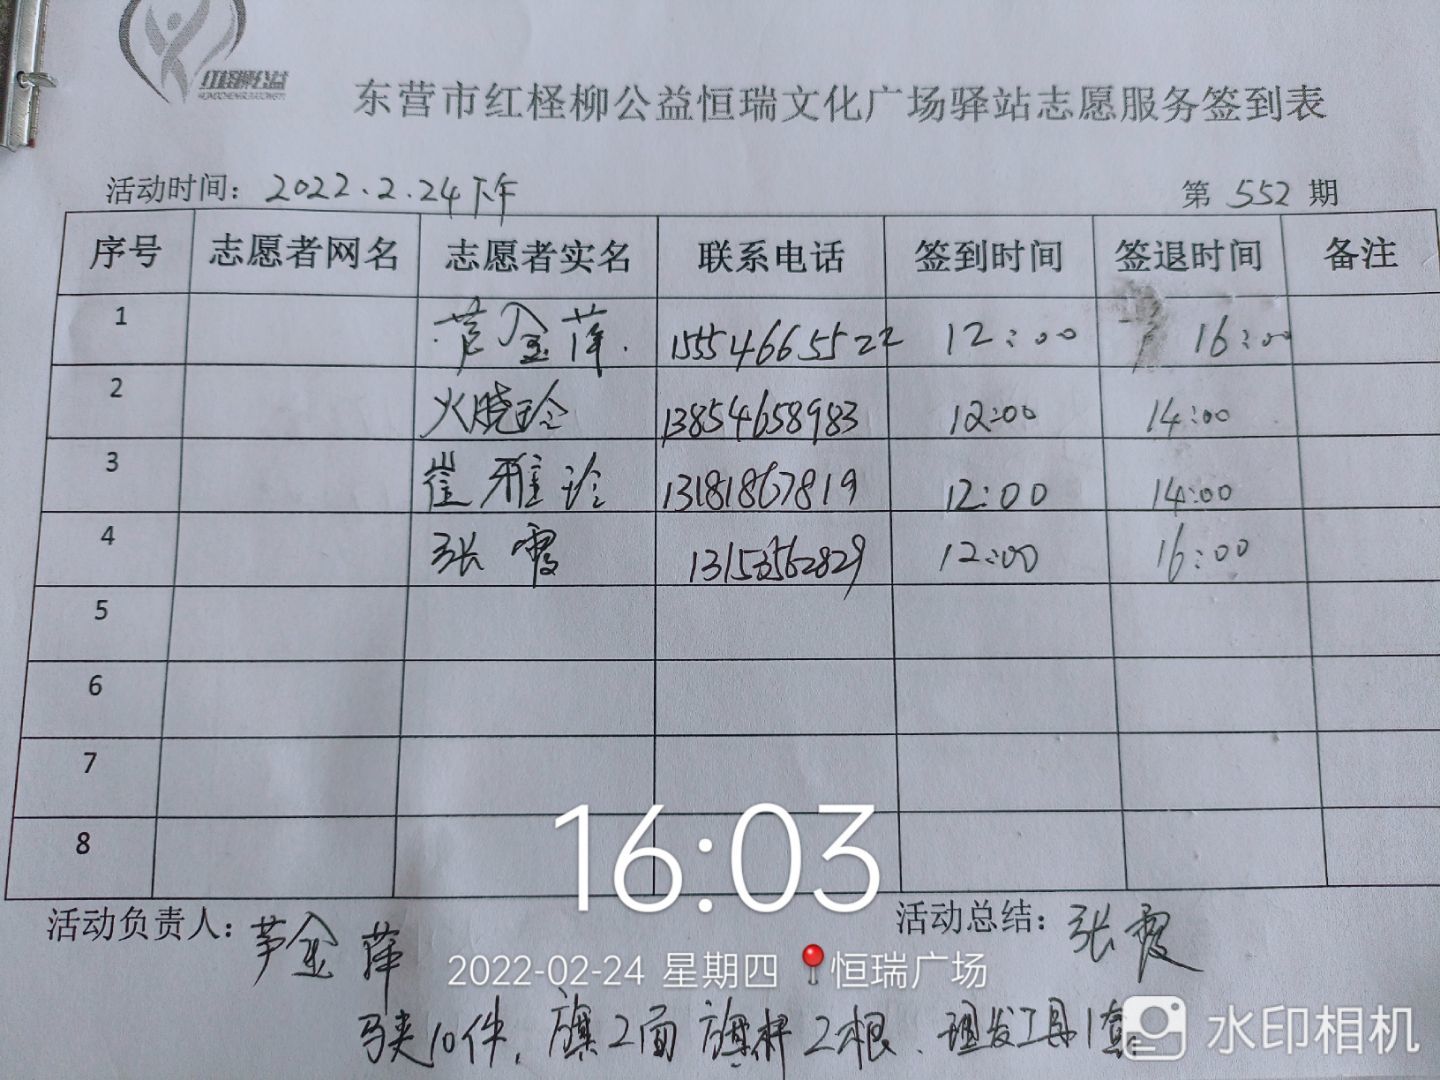 红柽柳公益
东营市红柽柳公益恒瑞文化广场驿站志愿服务签到表
活动时间：2022.2.24下午 第 552 期
序号 志愿者网名 志愿者实名 联系电话 签到时间 签退时间 备注
1 金萍 15554665522 12:00 16:00
2 火晓玲 13854658983 12:00 14:00
3 崔雅玲 13181867819 12:00 14:00
4 张霞 12:00 16:00
5
6
7
8
16:03
活动负责人：芦金萍 活动总结：张霞
2022-02-24 星期四 恒瑞广场
马夹10件，旗2面 旗杆2根、理发工具1套
水印相机